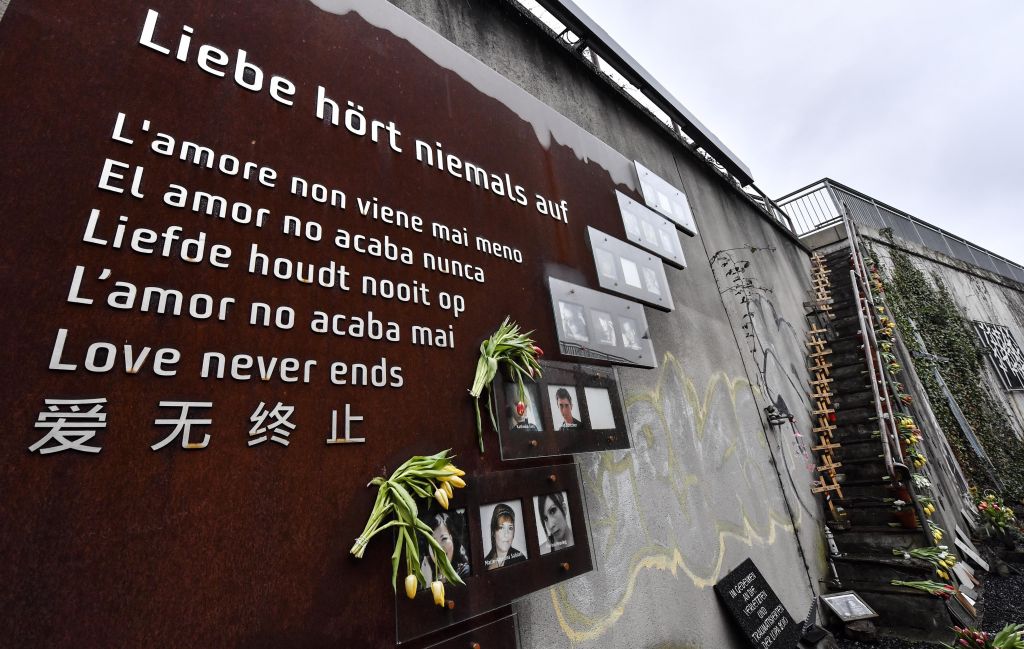 Liebe hört niemals auf
L'amore non viene mai meno
El amor no acaba nunca
Liefde houdt nooit op
L'amor no acaba mai
Love never ends
爱 无 终 止
IM GEDENKEN
AN DIE
VERLETZTEN
UND
TRAUMATISIERTEN
DER